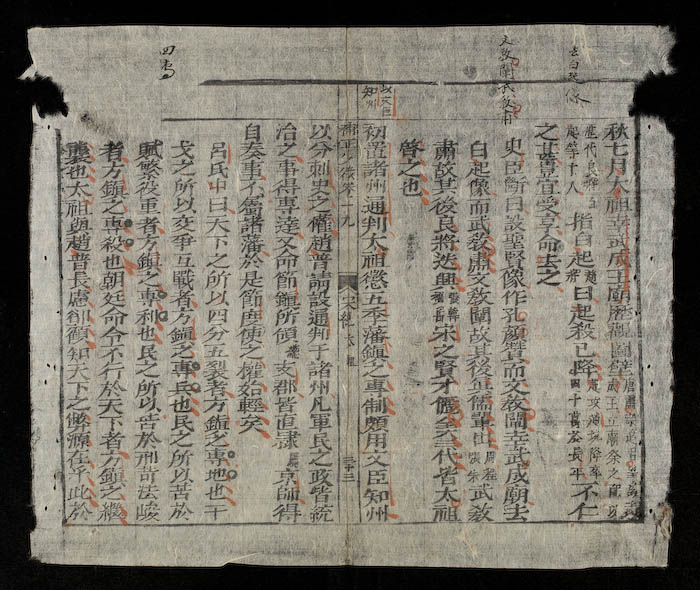 去白起像
文教開武教肅
四當
以文臣
知州
秋七月太祖幸武成王廟歷觀圖壁
指白起曰起殺已降不仁
之甚豈宜受享命去之
史臣斷曰設聖賢像作孔顏贊而文教開幸武成廟去
白起像而武教肅文教開故其後真儒輩出武教
肅故其後良將迭興宋之賢才儷美三代者太祖
啓之也
初置諸州通判太祖懲五季藩鎮之專制頗用文臣知州
宋紀
三十三
以分刺史之權趙普請設通判于諸州凡軍民之政皆統
治之事得專達又命節鎮所領支郡皆直隸京師得
自奏事不屬諸藩於是節度使之權始輕矣
呂氏中曰天下之所以四分五裂者方鎮之專地也干
戈之所以交爭互戰者方鎮之專兵也民之所以苦於
賦繁役重者方鎮之專利也民之所以苦於刑苛法峻
者方鎮之專殺也朝廷命令不行於天下者方鎮之繼
襲也太祖與趙普長慮却顧知天下之弊源在乎此於